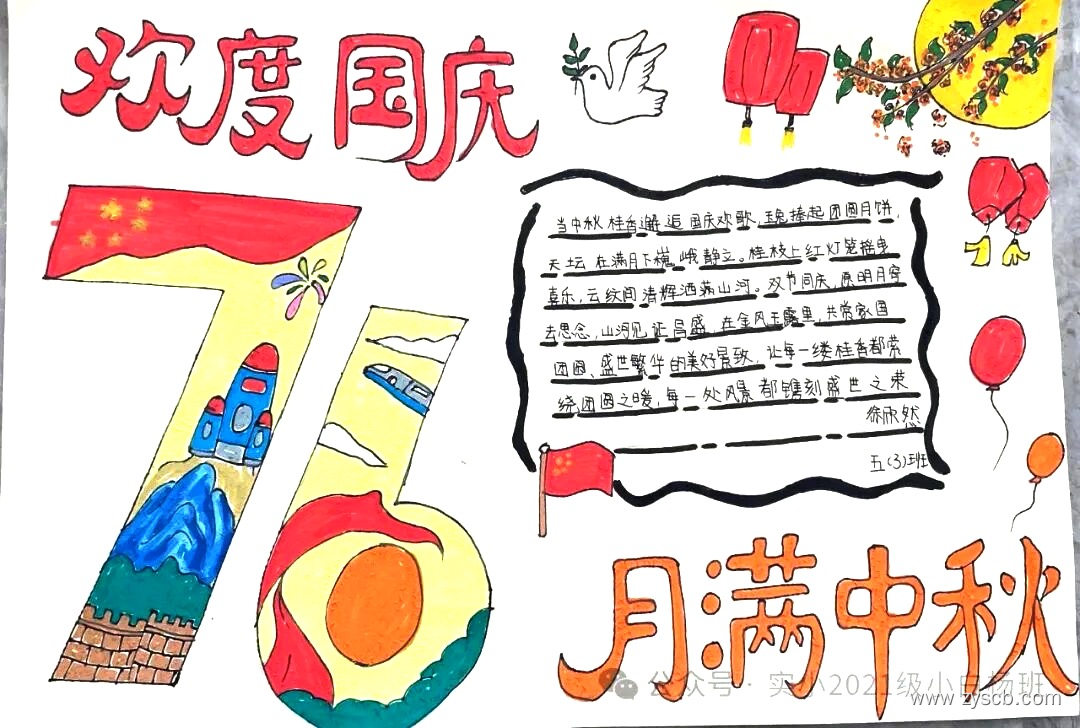 欢度国庆
76
当中秋桂香邂逅国庆欢歌,玉兔捧起团圆月饼,
天坛在满月下巍峨静立。桂枝上红灯笼摇曳
喜乐,云纹间清辉洒满山河。双节同庆,愿明月寄
去思念,山河见证昌盛,在金风玉露里,共赏家国
团圆、盛世繁华的美好景致,让每一缕桂香都萦
绕团圆之暖,每一处风景都镌刻盛世之荣
徐欣然
五(3)班
月满中秋
公众号·实小2021级小白杨班
www.zyscb.com